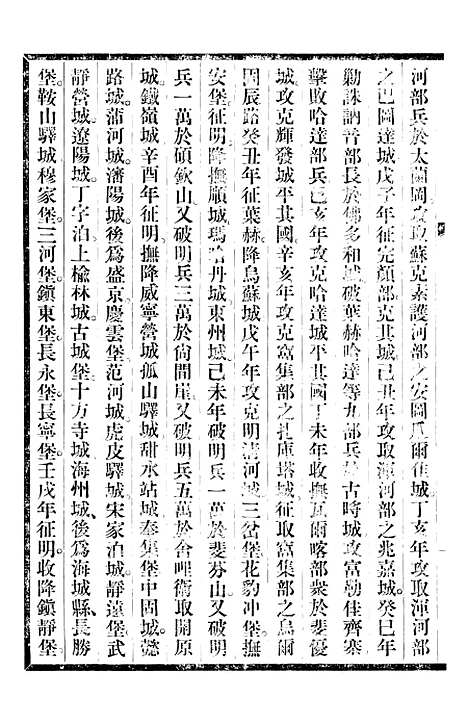 河部兵於太蘭岡攻取蘇克素護河部之安圖瓜爾佳城丁亥年攻取渾河部
之巴圖達城戊子年征完顏部克其城己丑年攻取渾河部之兆嘉城癸巳年
勦誅訥音部長於佛多和城破葉赫哈達等九部兵於古時城攻富勒佳齊寨
擊敗哈達部兵己亥年攻克哈達城平其國丁未年收撫瓦爾喀部於斐優
城攻克輝發城平其國辛亥年攻克窩集部之扎庫塔城征取窩集部之烏爾
固辰路癸丑年征葉赫降烏蘇城戊午年攻克明清河城三岔堡花豹冲堡
安堡征明降撫順城瑪哈丹城東州城己未年破明兵一萬於斐芬山又破明
兵一萬於碩欽山又破明兵三萬於尙間崖又破明兵五萬於舍唎衞取開原
城鐵嶺城辛酉年征明撫降威寧營城孤山驛城甜水站城奉集堡中固城懿
路城蒲河城瀋陽城後爲盛京慶雲堡范河城虎皮驛城宋家泊城靜遠堡武
靜營城遼陽城丁字泊上榆林城古城堡十方寺城海州城後爲海城縣長勝
堡鞍山驛城穆家堡三河堡鎮東堡長永堡長寧堡壬戌年征明收降鎮靜堡